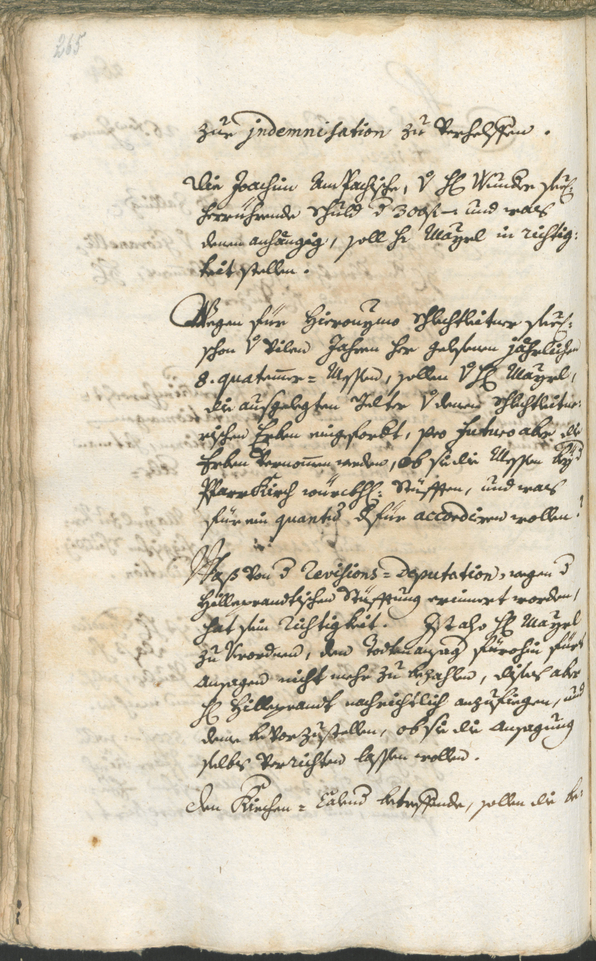 265
zur indemnisation zu verhelffen.
Die Joachim Am Pachische, v H: Wunder
herrührende Schuld d 300 f und was
deme anhängig, soll H: Mayrl in richtig:
keit stellen.
Wegen für Hieronymo Schlichtleitner
schon v vilen Jahren her gelesenen jährlichen
8. quatemer = Messen, sollen v H: Mayrl,
die ausgelegten Gelter v denen Schlichtleitne:
rischen Erben eingefordt, pro futuro aber die
Erben vernommen werden, ob sie die Messen bey d
PfarrKirch würckhl: Stüfften, und was
für ein quantum dafür accordiren wollen.
Waß von d Revisions = Deputation, wegen d
Hilleprandtischen Stüfftung erinnert worden,
hat sein Richtigkeit. Ist also H: Mayrl
zu verordnen, dem Todtenansag fürohin fürs
Ansagen nicht mehr zu bezahlen, dises aber
H: Hilleprandt nachrichtlich anzufiegen, und
deme bevorzustellen, ob sie die Ansagung
selbs verrichten lassen wollen.
Den Kirchen = betreffende, sollen die be: